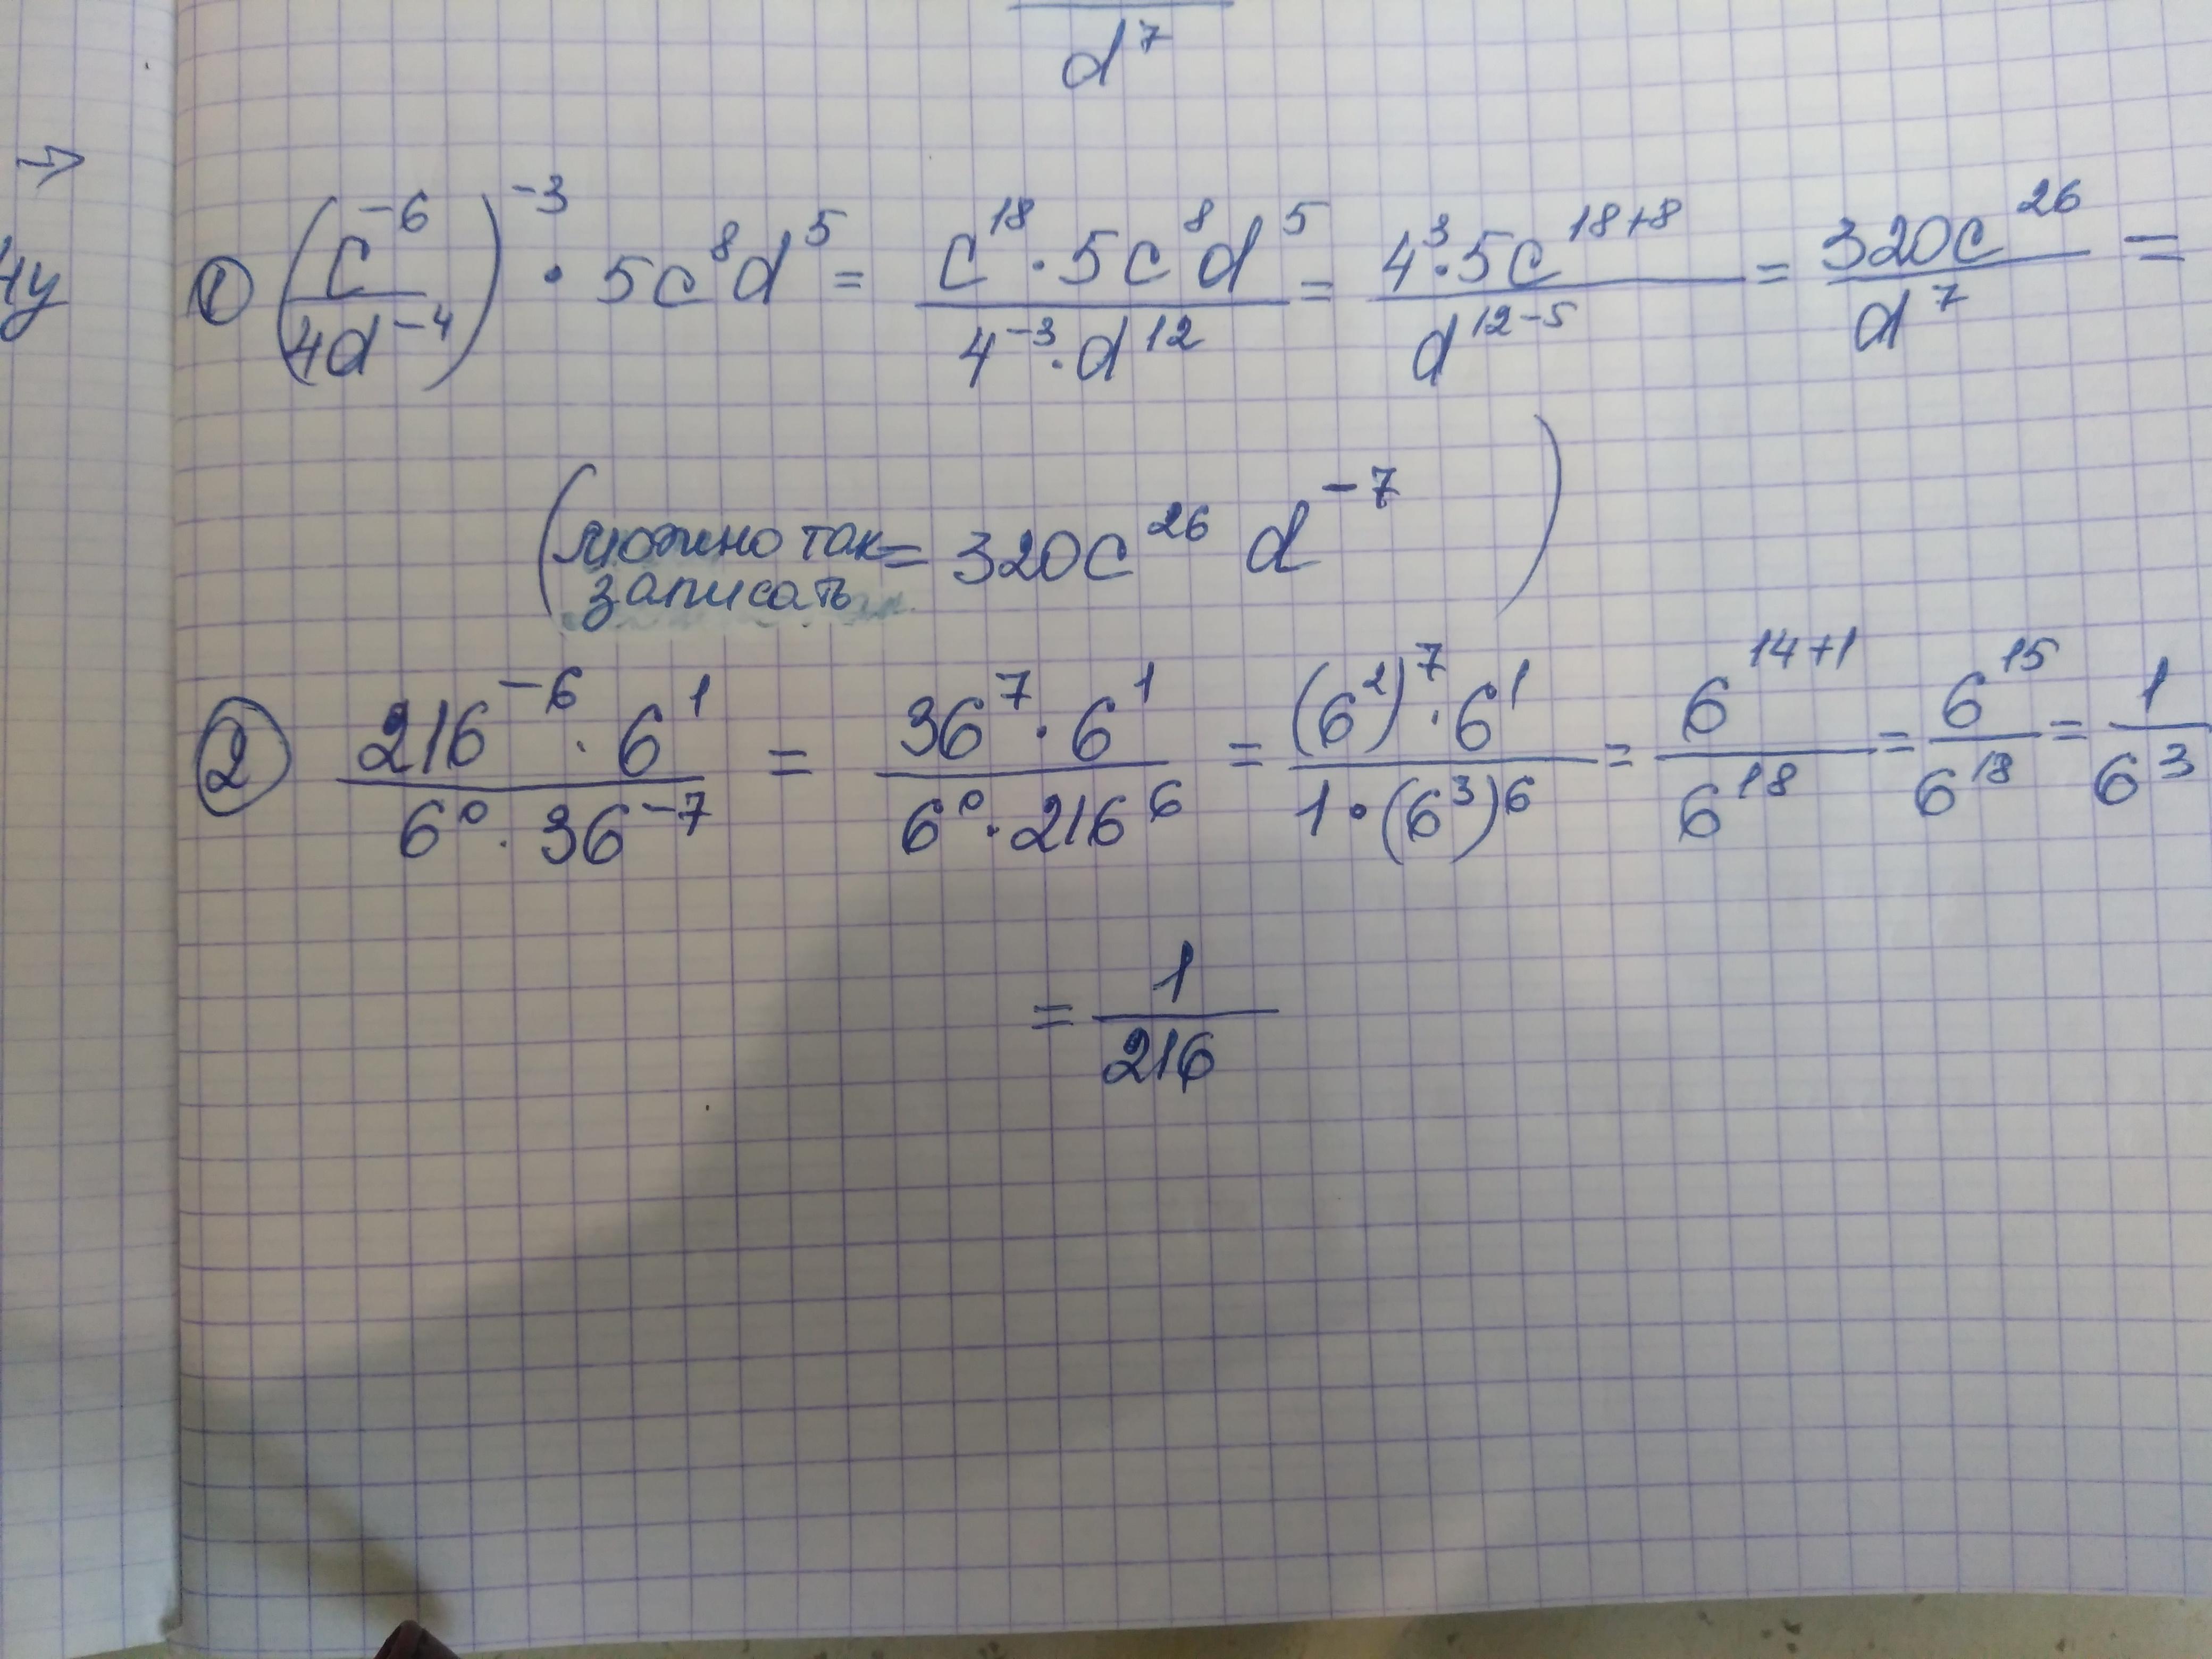 d⁷
→
① (c⁻⁶/4d⁻⁴)⁻³ · 5c⁸d⁵ = c¹⁸ · 5c⁸d⁵/4⁻³ · d¹² = 4³ · 5c¹⁸⁺⁸/d¹²⁻⁵ = 320c²⁶/d⁷ =
(можно так записать = 320c²⁶ d⁻⁷)
② 216⁻⁶ · 6¹/6⁰ · 36⁻⁷ = 36⁷ · 6¹/6⁰ · 216⁶ = (6²)⁷ · 6¹/1 · (6³)⁶ = 6¹⁴⁺¹/6¹⁸ = 6¹⁵/6¹⁸ = 1/6³
= 1/216